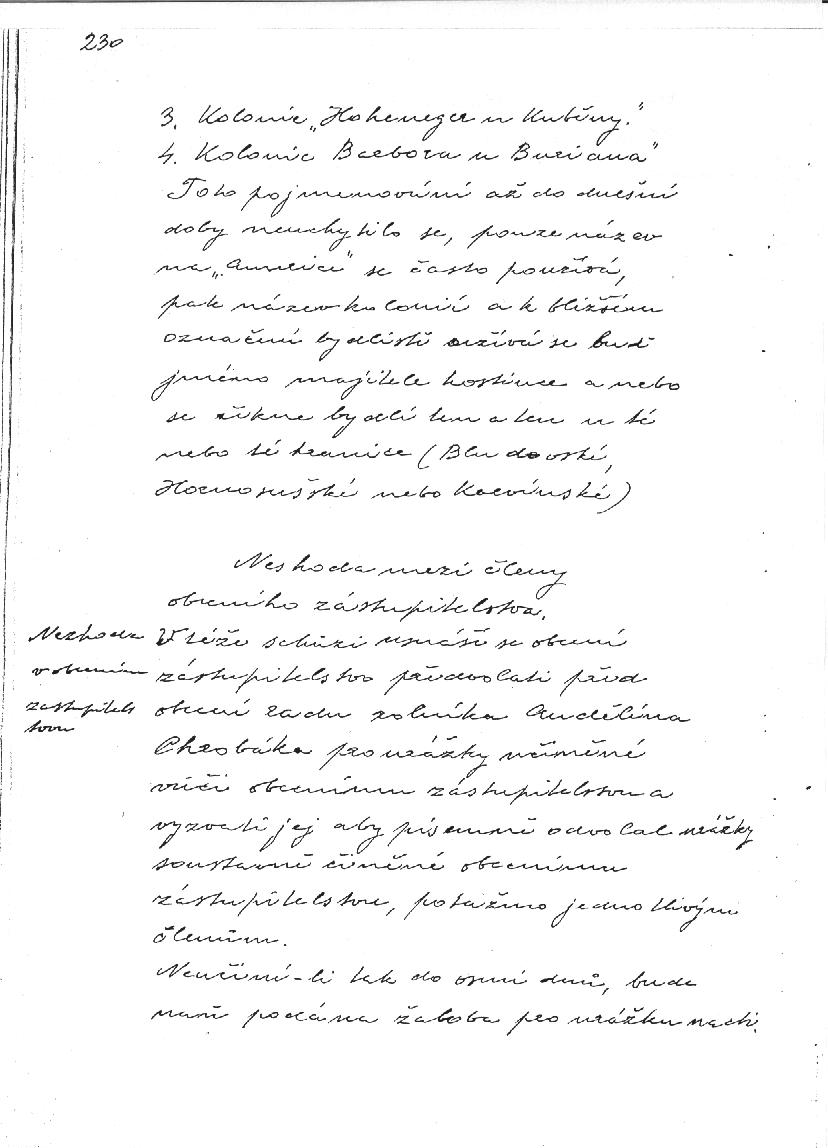 230
3. Kolonie „Hoheneger u Kuběny."
4. Kolonie Barbora u Buriana"
Toto pojmenování až do dnešní
doby neuchytilo se, pouze název
na „Americe" se často používá,
pak název kolonií a k bližšímu
označení bydliště užívá se buď
jméno majitele hostince a nebo
se řikne bydlí ten a ten u té
nebo té hranice (Bludovské,
Hornosušské nebo Karvínské)
Neshoda mezi členy
obecního zástupitelstva.
Nezhoda
v obecním
zástupitels
tvu
V téže schůzi usnáší se obecní
zástupitelstvo předvolati před
obecní radu rolníka Andělína
Chrobáka pro urážky učiněné
vůči obecnímu zástupitelstvu a
vyzvati jej aby písemně odvolal urážky
soustavně činěné obecnímu
zástupitelstvu, potažmo jednotlivým
členům.
Neučiní-li tak do osmi dnů, bude
naň podána žaloba pro urážku na cti.